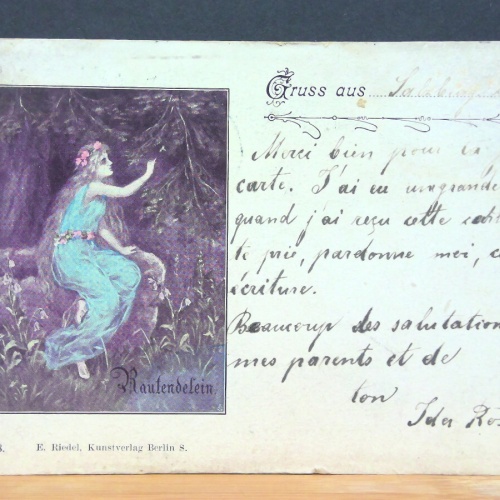 Gruss aus Salzburg
Merci bien pour ta
carte. J'ai eu une grande
quand j'ai reçu cette
te prie, pardonne moi,
écriture.
Beaucoup des salutation
mes parents et de
ton
Ida Ros
Rautendelein.
E. Riedel, Kunstverlag Berlin S.